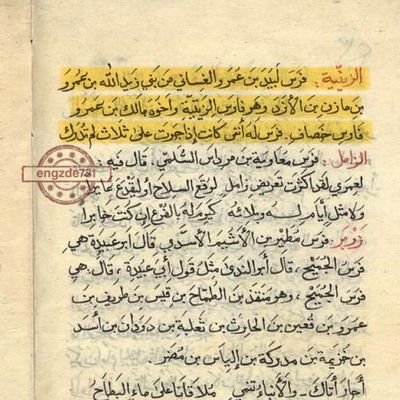 الزيتية : فرس لبيد بن عمرو الغساني من بني زيد الله بن عمرو
بن مازن بن الأزد وهو فارس الزيتية وأخوه مالك بن عمرو
فارس خصاف . فرس له أنثى كانت إذا جرت على ثلاث لم تدرك
الزامل : فرس معاوية بن مرداس السلمي . قال فيه :
لعمري لقد أكثرت تعريض زامل لوقع السلاح أو ليقدع عابرا
ولا مثل أيام له وبلائه كيوم له بالفرع إن كنت خابرا
engzde781
زوبر : فرس مطير بن الأشيم الأسدي قال أبو عبيدة هي
فرس الجميح ، قال أبو الندى مثل قول أبي عبيدة ، قال هي
فرس الجميح ، وهو منقذ بن الطماح بن قيس بن طريف بن
عمرو بن قعين بن الحارث بن ثعلبة بن دودان بن أسد
بن خزيمة بن مدركة بن إلياس بن مضر .
أجار أتاك والأنباء تنمي على ماء البطاح